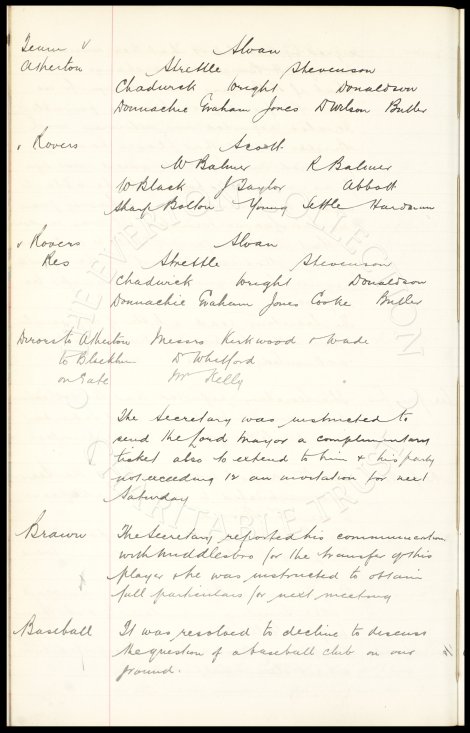 Team v Sloan
Atherton Strettle Stevenson
Chadwick Wright Donaldson
Donnachie Graham Jones D Wilson Butler
v Rovers Scott
W Balmer R Balmer
W Black J Taylor Abbott
Sharp Bolton Young Settle Hardman
v Rovers Sloan
Res Strettle Stevenson
Chadwick Wright Donaldson
Donnachie Graham Jones Cooke Butler
Directors to Atherton Messrs Kirkwood & Wade
to Blackburn D Whitford
on Gate Mr Kelly
The Secretary was instructed to
send the Lord Mayor a complimentary
ticket also to extend to him & his party
not exceeding 12 an invitation for next
Saturday
Brawn The Secretary reported his communication
with Middlesbro for the transfer of this
player & he was instructed to obtain
full particulars for next meeting
Baseball It was resolved to decline to discuss
the question of a baseball club on our
ground.
THE EVERTON COLLECTION
CHARITABLE TRUST